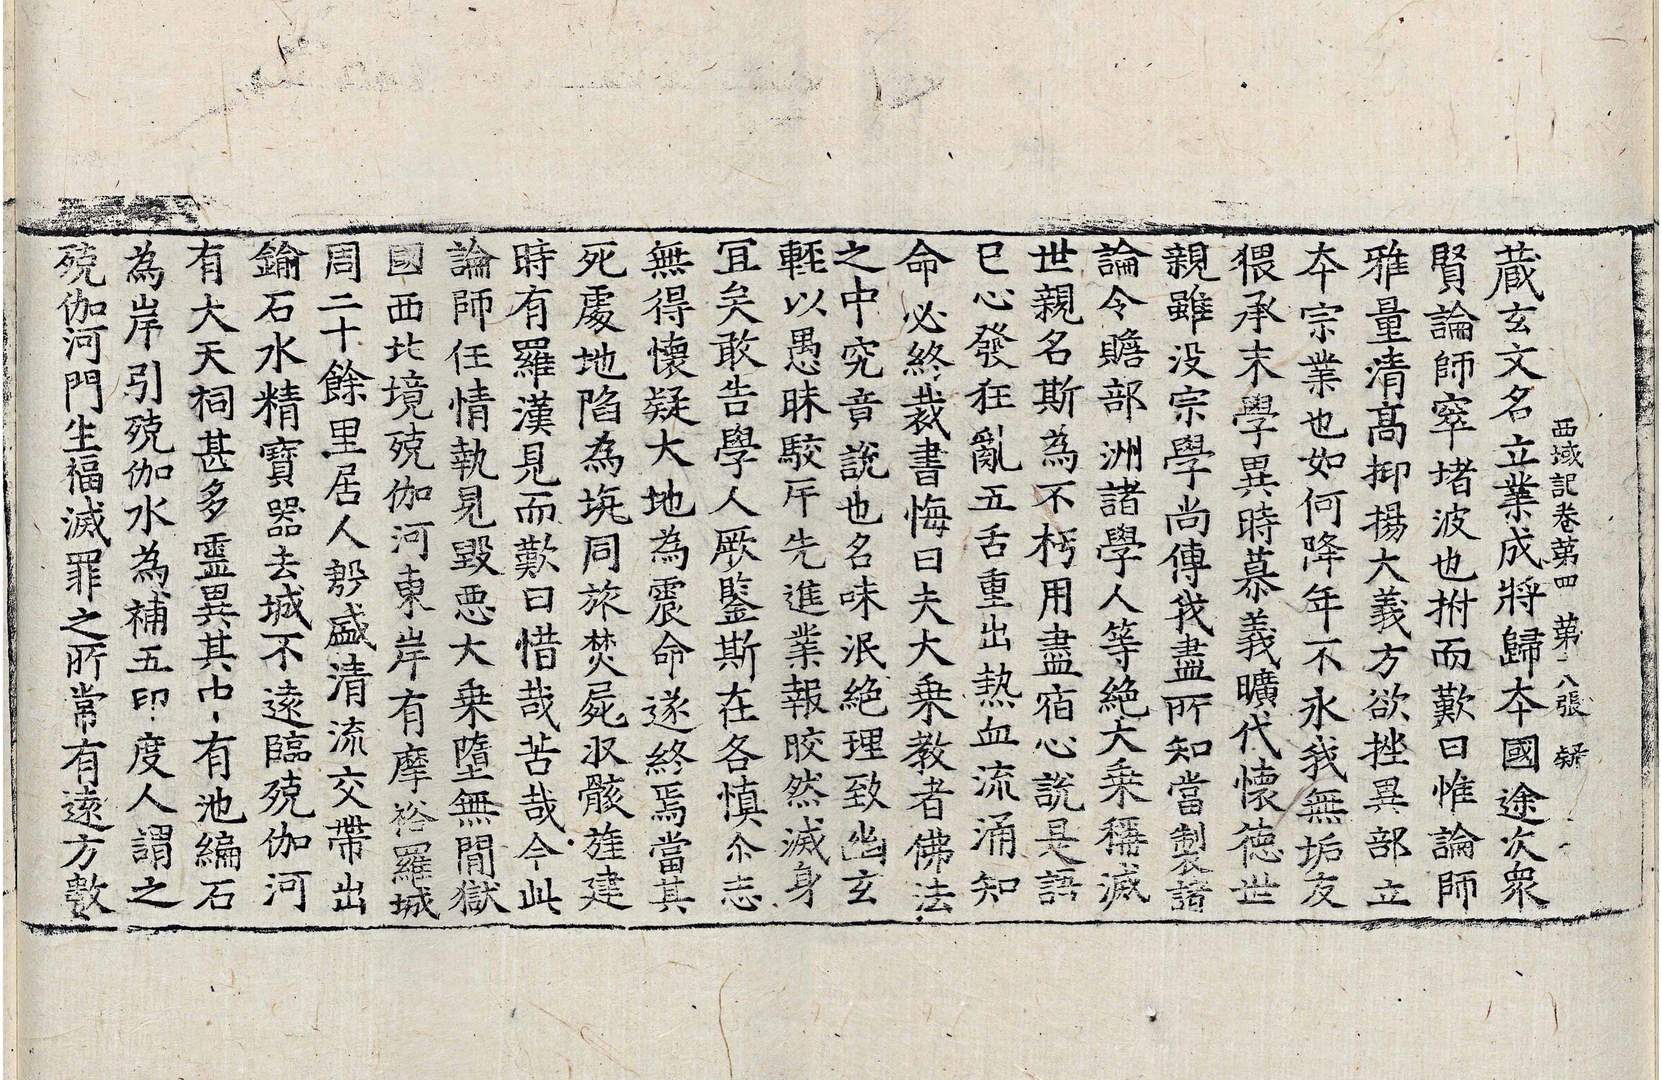 西域記卷第四　第十八張　疑
藏玄文名立業成將歸本國途次衆
賢論師窣堵波也拊而歎曰惟論師
雅量清高抑揚大義方欲挫異部立
本宗業也如何降年不永我無垢友
猥承末學異時慕義曠代懷德世
親雖没宗學尚傳我盡所知當製諸
論令贍部洲諸學人等絶大乗稱滅
世親名斯為不朽用盡宿心說是語
已心發狂亂五舌重出熱血流涌知
命必終裁書悔曰夫大乗教者佛法
之中究竟說也名味泯絶理致幽玄
輕以愚昧駮斥先進業報皎然滅身
宜矣敢告學人厥鑒斯在各慎尒志
無得懷疑大地為震命遂終焉當其
死處地陷為坑同旅焚屍収骸旌建
時有羅漢見而歎曰惜哉苦哉今此
論師任情執見毀惡大乗墮無間獄
國西北境殑伽河東岸有摩裕羅城
周二十餘里居人殷盛清流交帶出
鍮石水精寶器去城不遠臨殑伽河
有大天祠甚多靈異其中有池編石
為岸引殑伽水為補五印度人謂之
殑伽河門生福滅罪之所常有遠方數